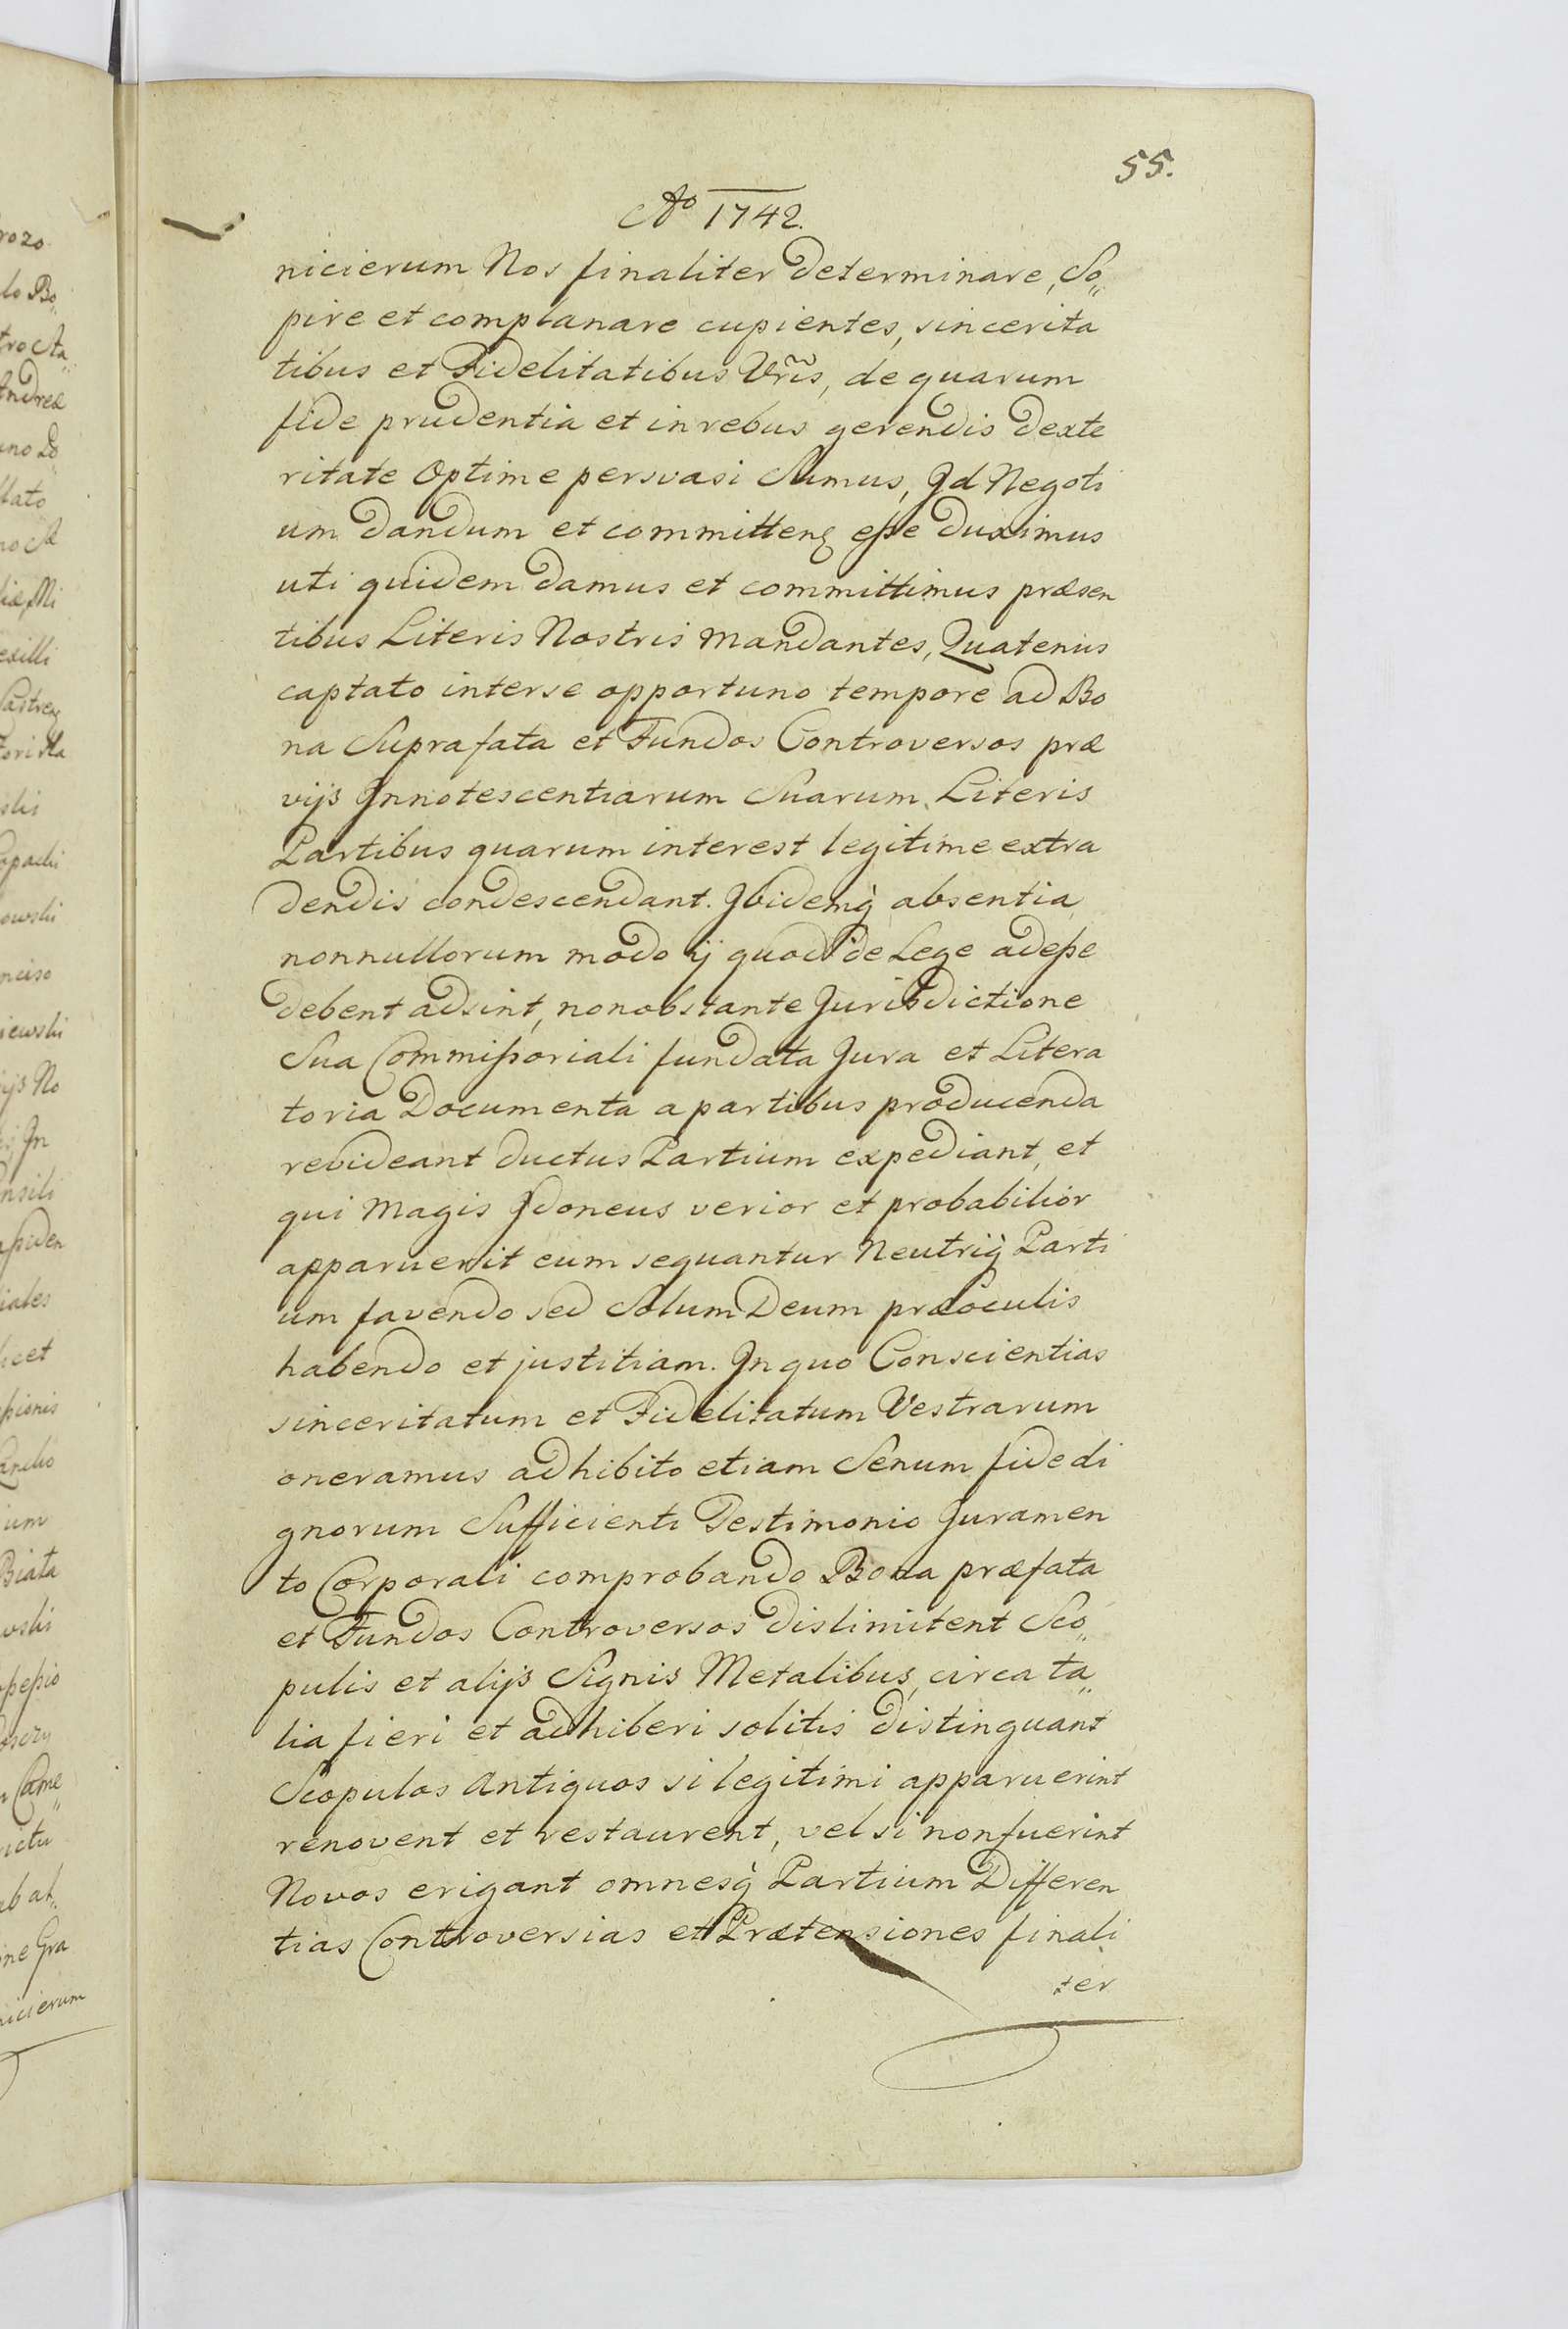 55.
Ao 1742.
nicierum Nos finaliter determinare, So„
pire et complanare cupientes, sincerita
tibus et Fidelitatibus Vr̃is, de quarum
fide prudentia et in rebus gerendis dexte
ritate Optime persvasi Sumus, Id Negoti
um dandum et committenꝗ eſse duximus
uti quidem damus et committimus præsen
tibus Literis Nostris mandantes, Quatenus
captato interse opportuno tempore ad Bo
na Suprafata et Fundos Controversos præ
vijs Innotescentiarum Suarum Literis
Partibus quarum interest legitime extra
dendis condescendant. Ibidemq̀ absentia
nonnullorum modo ij quod de Lege adeſse
debent adsint, nonobstante Jurisdictione
Sua Commiſsoriali fundata Jura et Litera
toria Documenta a partibus producenda
revideant ductus Partium expediant, et
qui magis Idoneus verior et probabilior
apparuerit eum sequantur Neutriq̀ Parti
um favendo sed Solum Deum præoculis
habendo et justitiam. In quo Conscientias
sinceritatum et Fidelitatum Vestrarum
oneramus adhibito etiam Senum fide di
gnorum Sufficienti Testimonio Juramen
to Corporali comprobando Bona præfata
et Fundos Controversos dislimitent Sco„
pulis et alijs Signis Metalibus, circa ta„
lia fieri et adhiberi solitis distinguant
Scopulos Antiquos si legitimi apparuerint
renovent et restaurent, vel si nonfuerint
Novos erigant omnesq̀ Partium Differen
tias Controversias et Prætensiones finali
ter